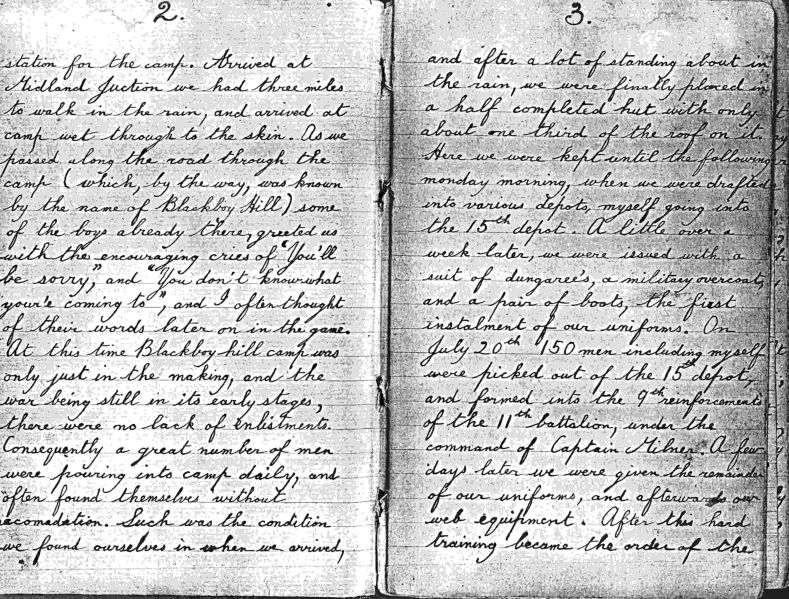 2.
station for the camp. Arrived at
Midland Juction we had three miles
to walk in the rain, and arrived at
camp wet through to the skin. As we
passed along the road through the
camp (which, by the way, was known
by the name of Blackboy Hill) some
of the boys already there, greeted us
with the encouraging cries of "You'll
be sorry," and "You don't know what
your'e coming to", and I often thought
of their words later on in the game.
At this time Blackboy hill camp was
only just in the making, and the
war being still in its early stages,
there were no lack of Enlistments.
Consequently a great number of men
were pouring into camp daily, and
often found themselves without
accomadation. Such was the condition
we found ourselves in when we arrived,
3.
and after a lot of standing about in
the rain, we were finally placed in
a half completed hut with only
about one third of the roof on it.
Here we were kept until the following
monday morning, when we were drafted
into various depots, myself going into
the 15th depot. A little over a
week later, we were issued with a
suit of dungaree's, a military overcoat,
and a pair of boots, the first
instalment of our uniforms. On
July 20th 150 men including myself
were picked out of the 15th depot,
and formed into the 9th reinforcements
of the 11th battalion, under the
command of Captain Milner. A few
days later we were given the remainder
of our uniforms, and afterwards our
web equipment. After this hard
training became the order of the